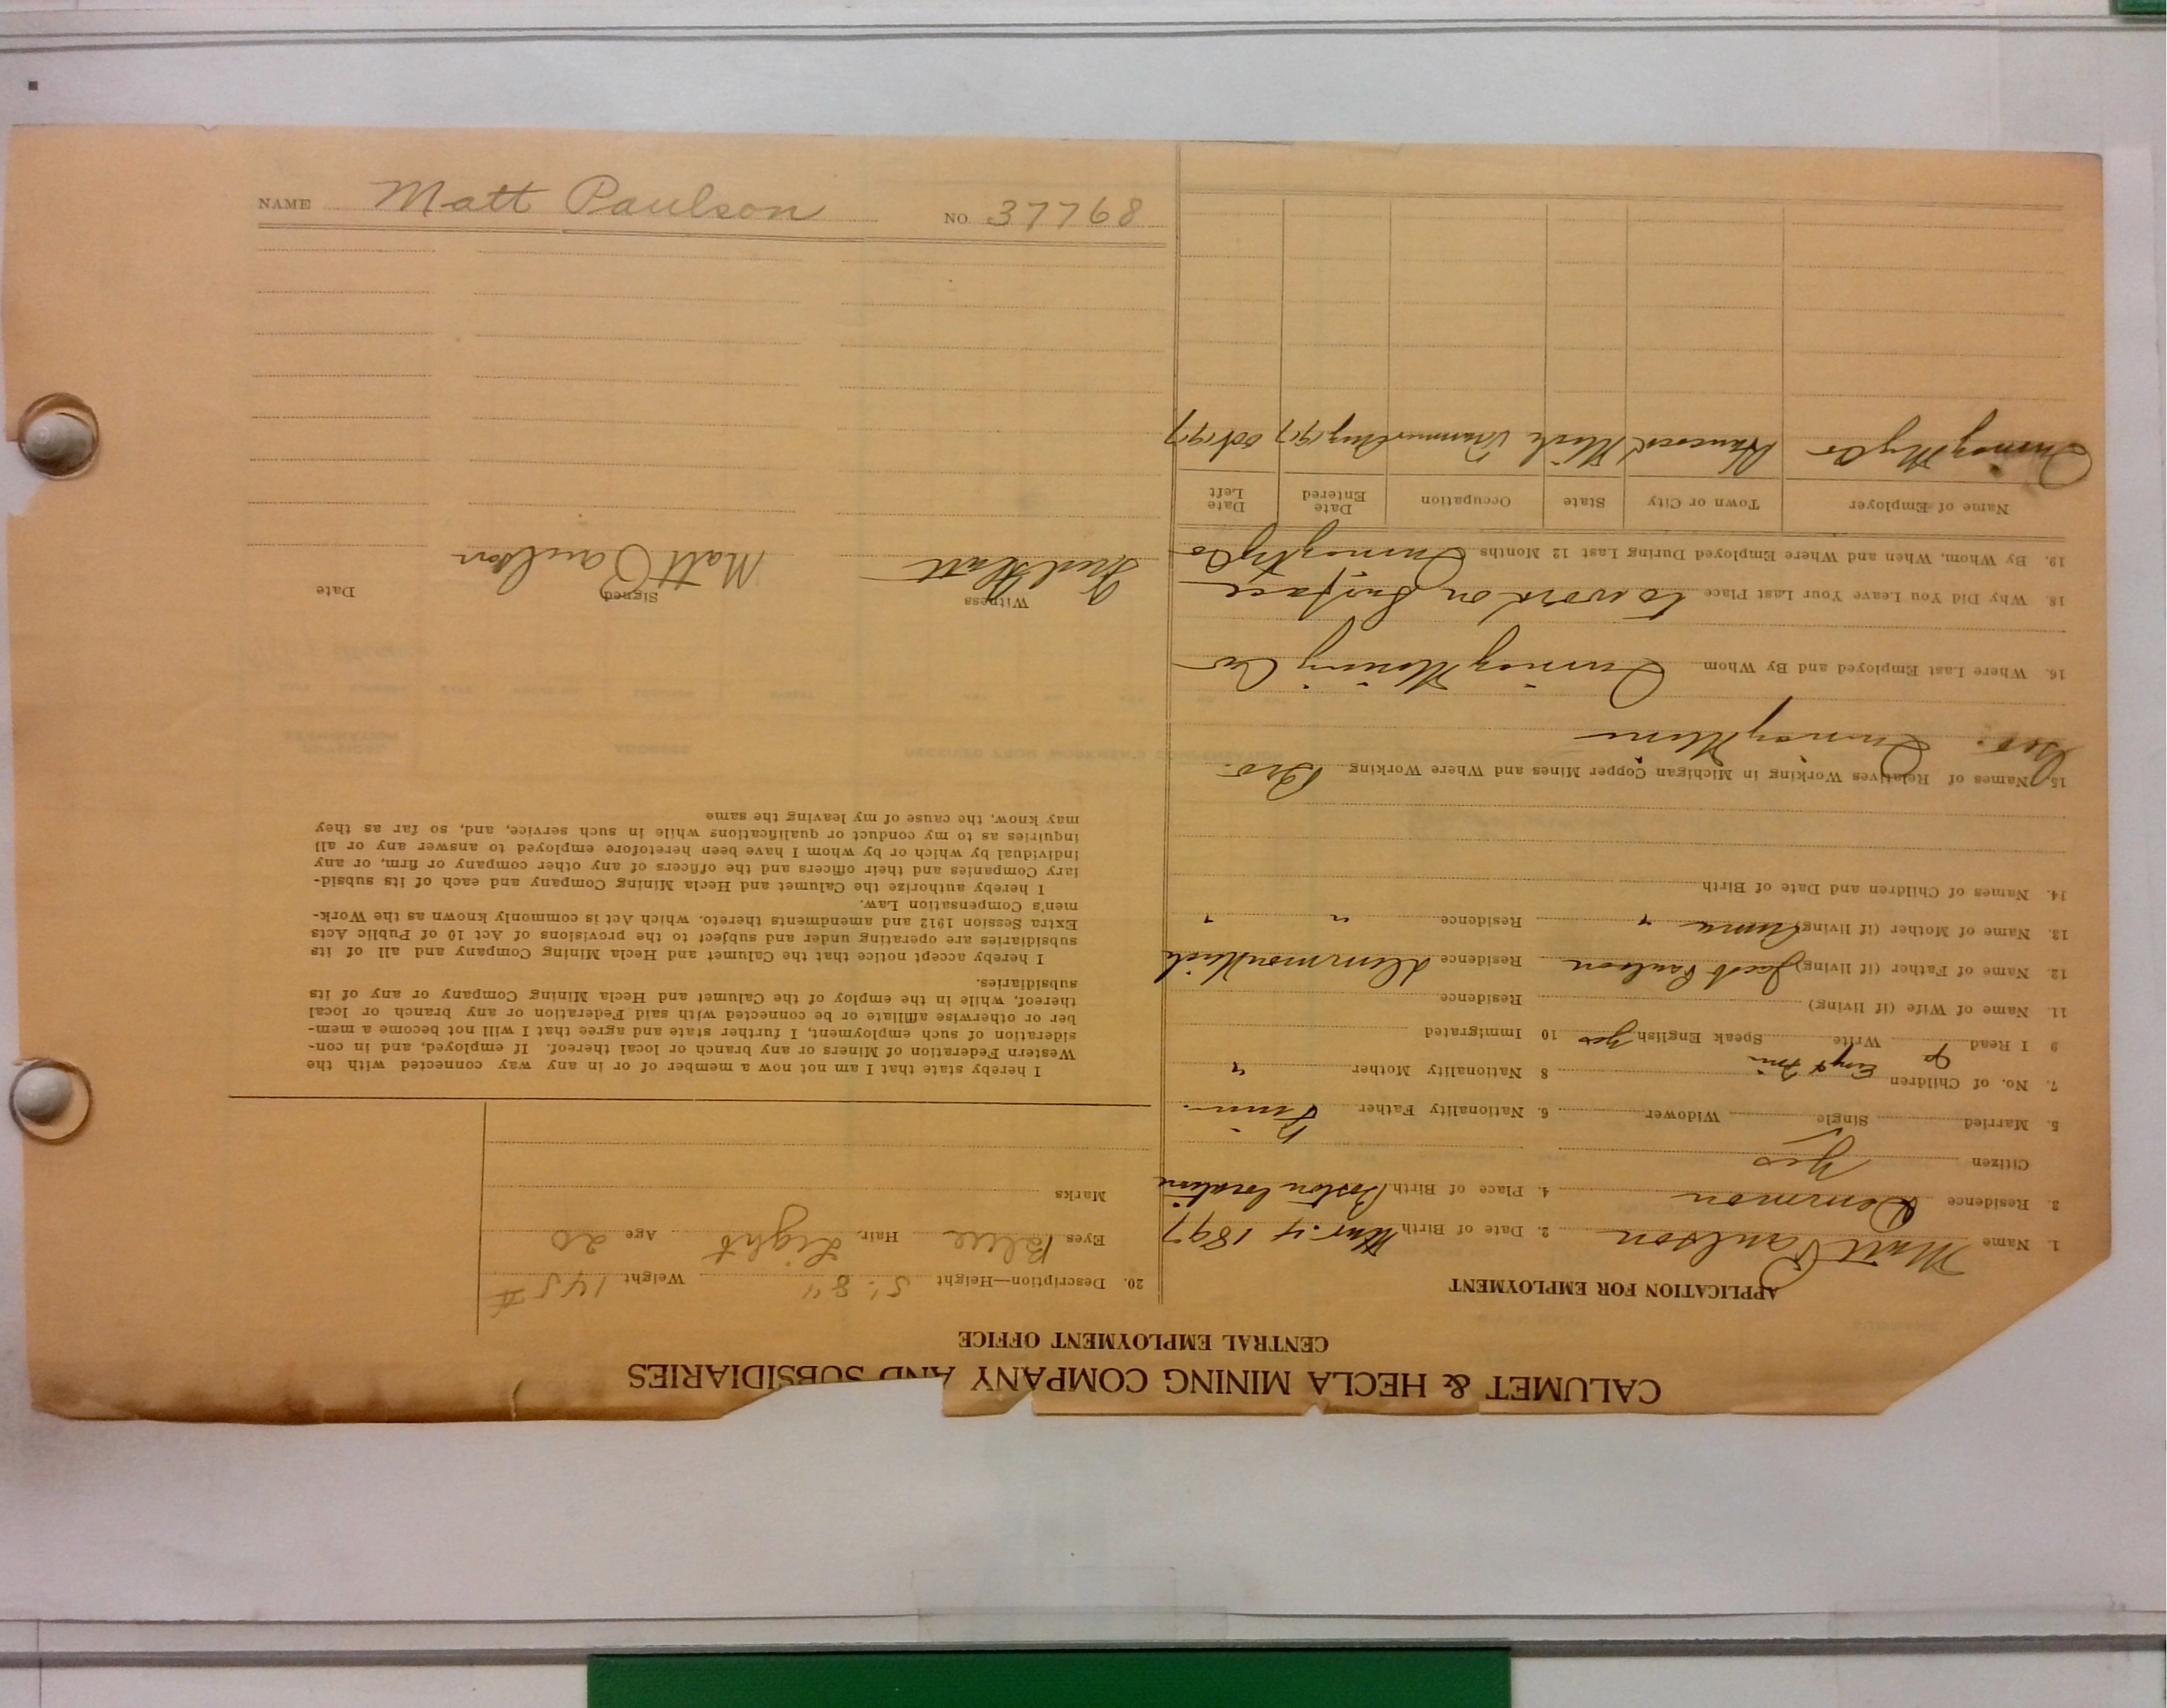 NAME Matt Paulson NO 37768
CALUMET & HECLA MINING COMPANY AND SUBSIDIARIES
CENTRAL EMPLOYMENT OFFICE
APPLICATION FOR EMPLOYMENT
1. Name Matt Paulson 2. Date of Birth Mar. 4 1897
3. Residence Demmon 4. Place of Birth Boston Location
Citizen Yes
5. Married Single Widower 6. Nationality Father Finn
7. No. of Children 8 Nationality Mother "
9 I Read Write Speak English Yes 10 Immigrated
Engl & Finn
11. Name of Wife (if living) Residence
12. Name of Father (if living) Jacob Paulson Residence Demmon Mich
13. Name of Mother (if living) Anna " Residence " "
14. Names of Children and Date of Birth
15. Names of Relatives Working in Michigan Copper Mines and Where Working Bro.
Geo. Quincy Mine
16. Where Last Employed and By Whom Quincy Mining Co
18. Why Did You Leave Your Last Place to work on Surface
19. By Whom, When and Where Employed During Last 12 Months Quincy Mg Co
Name of Employer Town or City State Occupation Date Entered Date Left
Quincy Mg Co Hancock Mich Trammer Aug 1917 Oct 1917
20. Description—Height 5' 8" Weight 145 #
Eyes Blue Hair Light Age 20
Marks
I hereby state that I am not now a member of or in any way connected with the
Western Federation of Miners or any branch or local thereof. If employed, and in con-
sideration of such employment, I further state and agree that I will not become a mem-
ber or otherwise affiliate or be connected with said Federation or any branch or local
thereof, while in the employ of the Calumet and Hecla Mining Company or any of its
subsidiaries.
I hereby accept notice that the Calumet and Hecla Mining Company and all of its
subsidiaries are operating under and subject to the provisions of Act 10 of Public Acts
Extra Session 1912 and amendments thereto, which Act is commonly known as the Work-
men's Compensation Law.
I hereby authorize the Calumet and Hecla Mining Company and each of its subsid-
iary Companies and their officers and the officers of any other company or firm, or any
individual by which or by whom I have been heretofore employed to answer any or all
inquiries as to my conduct or qualifications while in such service, and, so far as they
may know, the cause of my leaving the same
Witness Signed Date
Matt Paulson